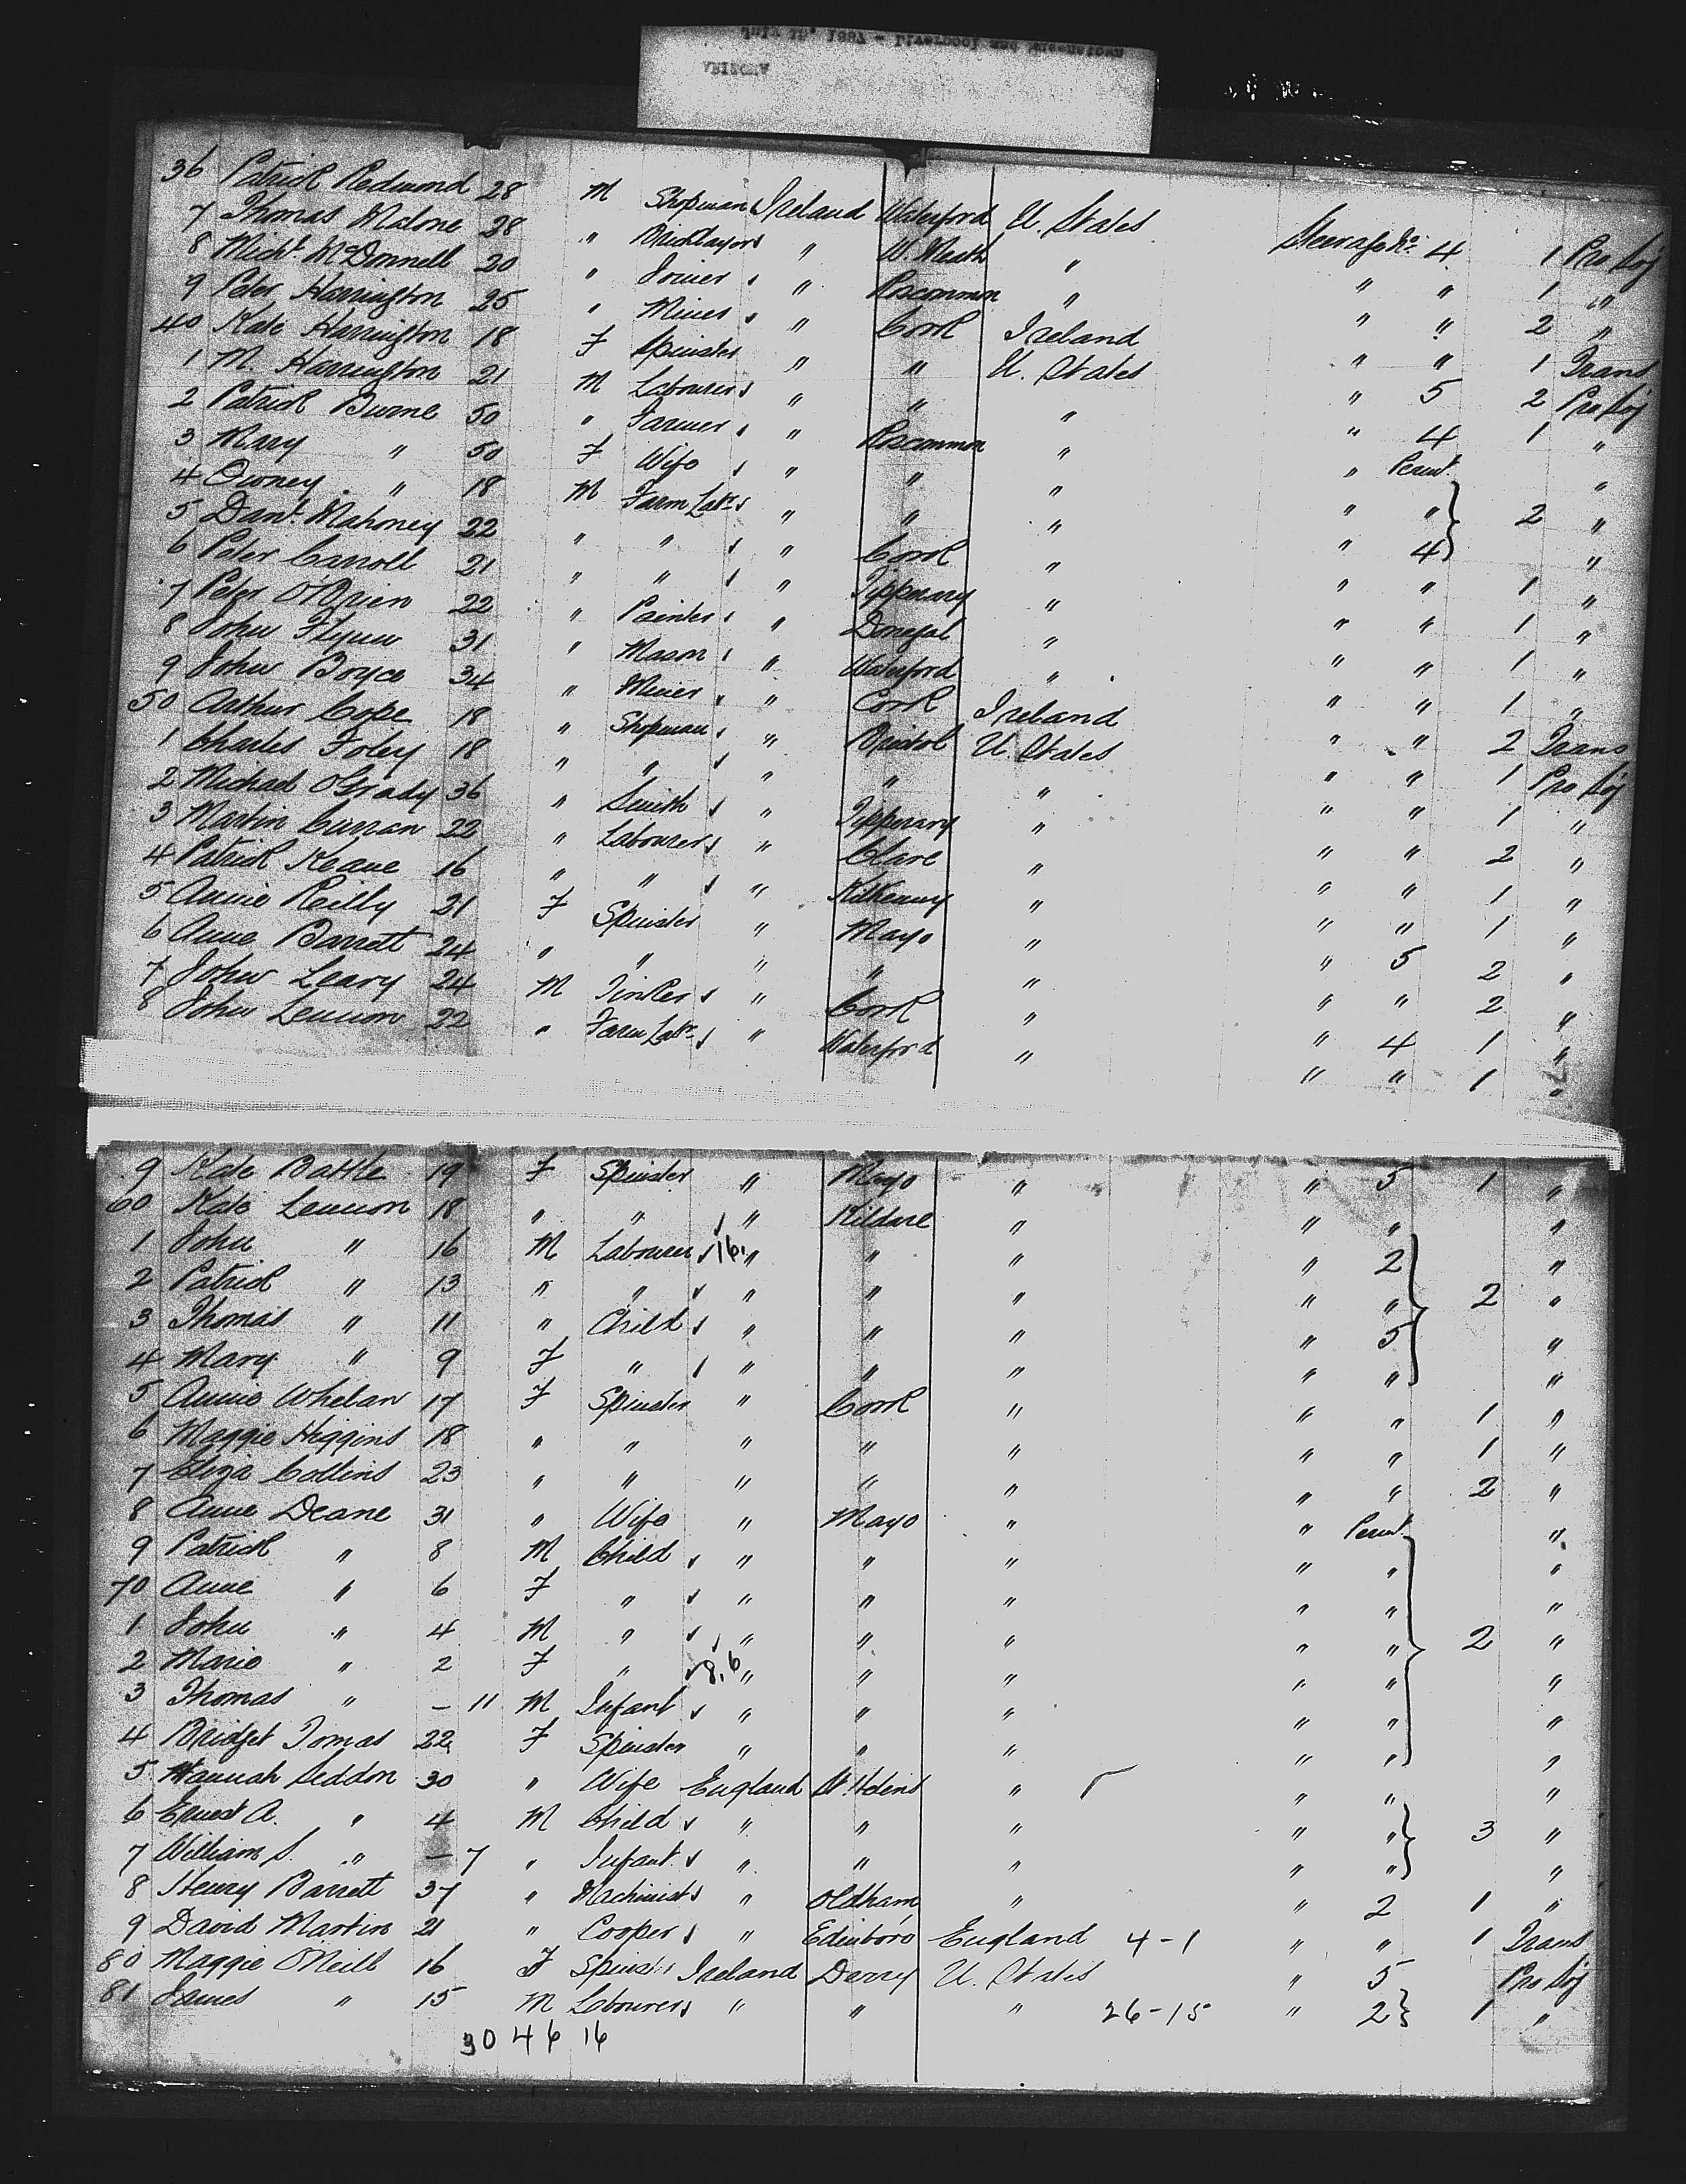 36 Patrick Redmond 28 M Shopman Ireland Waterford U. States Steerage No. 4 1 Pro Soj
7 Thomas Malone 28 " Bricklayer " W. Meath " " " 1 "
8 Michl. McDonnell 20 " Joiner " Roscommon " " " 2 "
9 Peter Harrington 25 " Miner " Cork Ireland " " 1 Trans
40 Kate Harrington 18 F Spinster " " U. States " 5 2 Pro Soj
1 M. Harrington 21 M Labourer " " " " 4 1 "
2 Patrick Burne 50 " Farmer " Roscommon " " Permt. "
3 Mary " 50 F Wife " " " " " 2 "
4 Owney " 18 M Farm Labr. " " " " 4 "
5 Danl. Mahoney 22 " " " Cork " " " 1 "
6 Peter Carroll 21 " " " Tipperary " " " 1 "
7 Peter O'Brien 22 " Painter " Donegal " " " 1 "
8 John Flynn 31 " Mason " Waterford " " " 1 "
9 John Boyce 34 " Miner " Cork Ireland " " 2 Trans
50 Arthur Cope 18 " Shopman " Bristol U. States " " 1 Pro Soj
1 Charles Foley 18 " " " " " " " 1 "
2 Michael O'Grady 36 " Smith " Tipperary " " " 2 "
3 Martin Curran 22 " Labourer " Clare " " " 1 "
4 Patrick Keane 16 " " " Kilkenny " " " 1 "
5 Annie Reilly 21 F Spinster " Mayo " " 5 2 "
6 Anne Barrett 24 " " " " " " " 2 "
7 John Leary 24 M Tinker " Cork " " 4 1 "
8 John Lennon 22 " Farm Labr. " Waterford " " " 1 "
9 Kate Battle 19 F Spinster " Mayo " " 5 1 "
60 Kate Lennon 18 " " " Kildare " " " "
1 John " 16 M Labourer 16 " " " " 2 "
2 Patrick " 13 " " " " " " " 2 "
3 Thomas " 11 " Child " " " " 5 "
4 Mary " 9 F " " " " " " "
5 Annie Whelan 17 F Spinster " Cork " " " 1 "
6 Maggie Higgins 18 " " " " " " " 1 "
7 Eliza Collins 23 " " " " " " " 2 "
8 Anne Deane 31 " Wife " Mayo " " Permt. "
9 Patrick " 8 M Child " " " " " "
70 Anne " 6 F " " " " " " "
1 John " 4 M " " " " " " 2 "
2 Marie " 2 F " 8,6 " " " " " "
3 Thomas " - 11 M Infant " " " " " "
4 Bridget Tomas 22 F Spinster " " " " " "
5 Hannah Seddon 30 " Wife England St. Helens " " " "
6 Ernest A. " 4 M Child " " " " " 3 "
7 William S. " - 7 " Infant " " " " " "
8 Henry Barrett 37 " Machinist " Oldham " " 2 1 "
9 David Martin 21 " Cooper " Edinboro England 4-1 " " 1 Trans
80 Maggie O'Neill 16 F Spinster Ireland Derry U. States " 5 Pro Soj
81 James " 15 M Labourer " " " 26-15 " 2 1 "
30 4 6 16